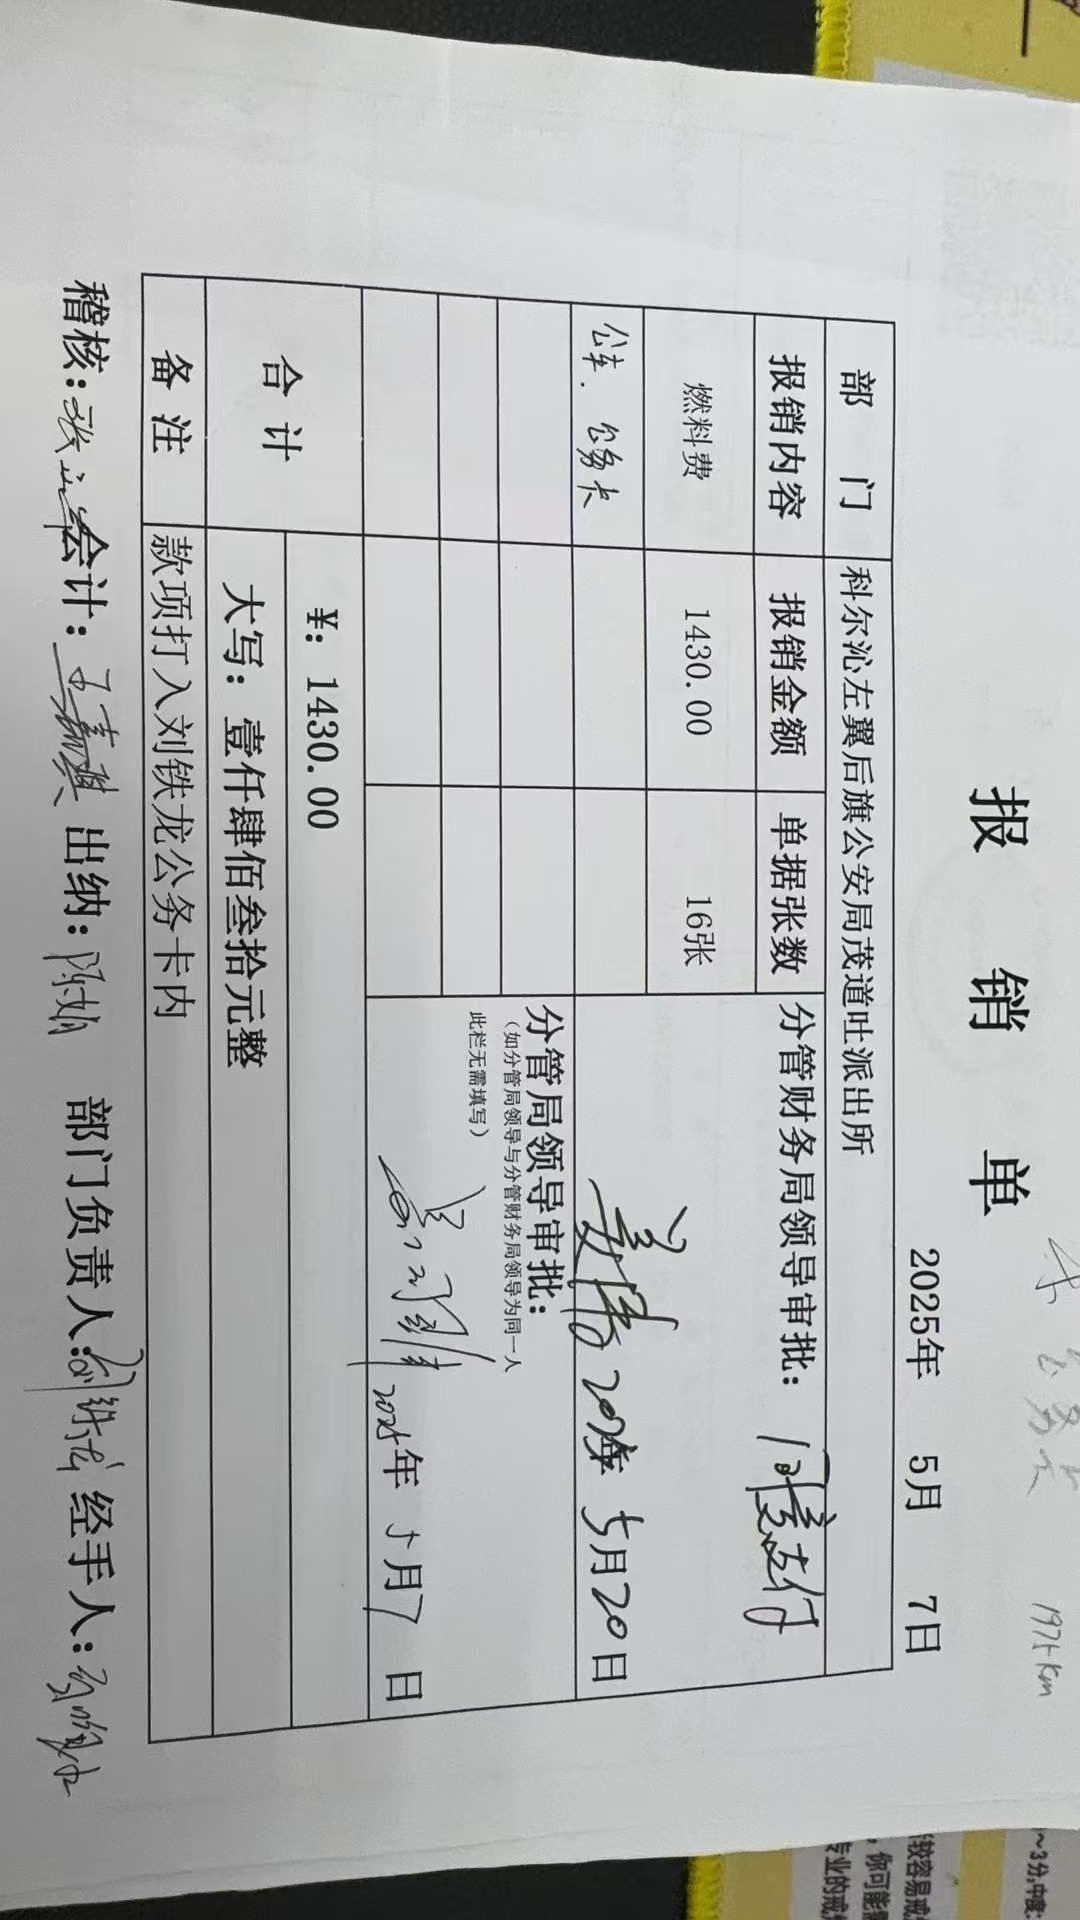 报 销 单
2025年 5月 7日
部 门 科尔沁左翼后旗公安局茂道吐派出所
报销内容 报销金额 单据张数 分管财务局领导审批：同意支付
燃料费 1430.00 16张
公车．公务卡
2025年 5月20日
分管局领导审批：
（如分管局领导与分管财务局领导为同一人
此栏无需填写）
2025年 5月7日
合 计 ¥：1430.00
大写：壹仟肆佰叁拾元整
备 注 款项打入刘铁龙公务卡内
稽核： 会计： 出纳： 部门负责人：刘铁龙 经手人：
公务卡
1975km
～3分,中度：
较容易戒
，你可能
专业的戒